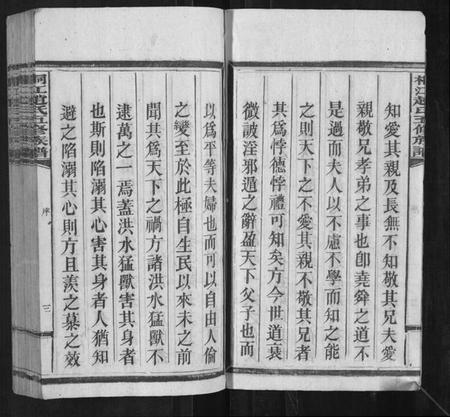 知愛其親及長無不知敬其兄夫愛
親敬兄孝弟之事也卽堯舜之道不
是過而夫人以不慮不學而知之能
之則天下之不愛其親不敬其兄者
其爲悖德悖禮可知矣方今世道衰
微詖淫邪遁之辭盈天下父子也而
以爲平等夫婦也而可以自由人倫
之變至於此極自生民以來未之前
聞其爲天下之禍方諸洪水猛獸不
逮萬之一焉蓋洪水猛獸害其身者
也斯則陷溺其心害其身者人猶知
避之陷溺其心則方且羨之慕之效
桐江趙氏五修族譜
序
三